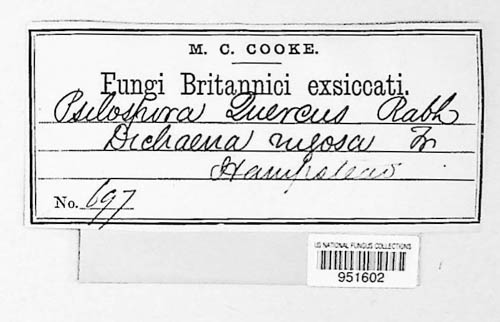 M. C. COOKE.
Fungi Britannici exsiccati.
Psilospora Quercus Rabh
Dichaena rugosa Fr
Hampstead
No. 697
US NATIONAL FUNGUS COLLECTIONS
951602